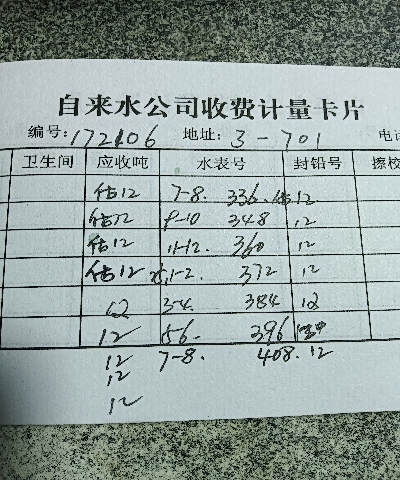 自来水公司收费计量卡片
编号: 172106 地址: 3-701 电话
卫生间 应收吨 水表号 封铅号 擦校
估12 7-8. 336. 估12
估12 9-10 348 12
估12 11-12. 360 12
估12 1-2. 372 12
12 3-4. 384 12
12 5-6- 396
12 7-8. 408. 12
12
12